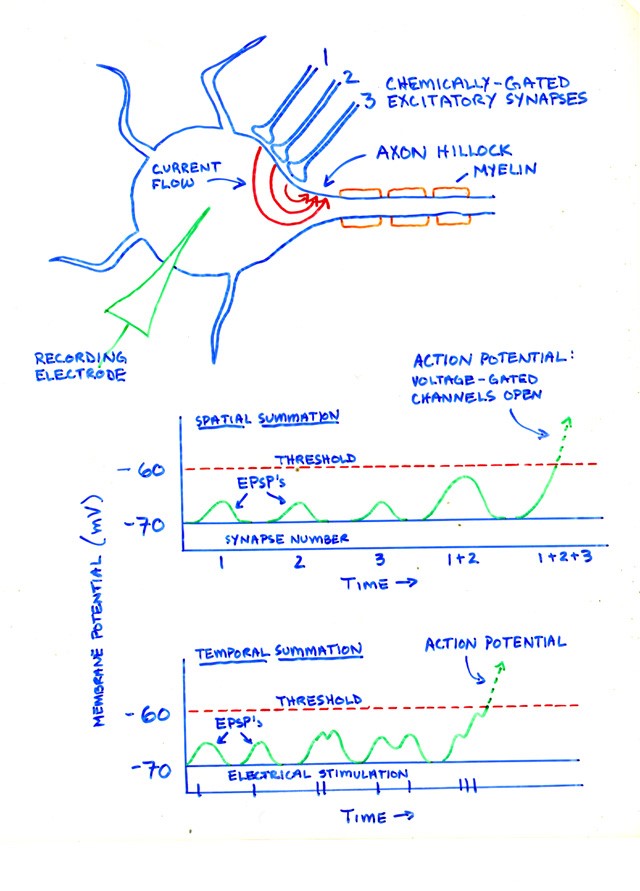 1
2
3
CHEMICALLY-GATED
EXCITATORY SYNAPSES
AXON HILLOCK
MYELIN
CURRENT
FLOW
RECORDING
ELECTRODE
ACTION POTENTIAL:
VOLTAGE-GATED
CHANNELS OPEN
SPATIAL SUMMATION
-60
THRESHOLD
EPSP's
-70
SYNAPSE NUMBER
1 2 3 1+2 1+2+3
TIME →
MEMBRANE POTENTIAL (mV)
TEMPORAL SUMMATION
ACTION POTENTIAL
-60
THRESHOLD
EPSP's
-70
ELECTRICAL STIMULATION
TIME →